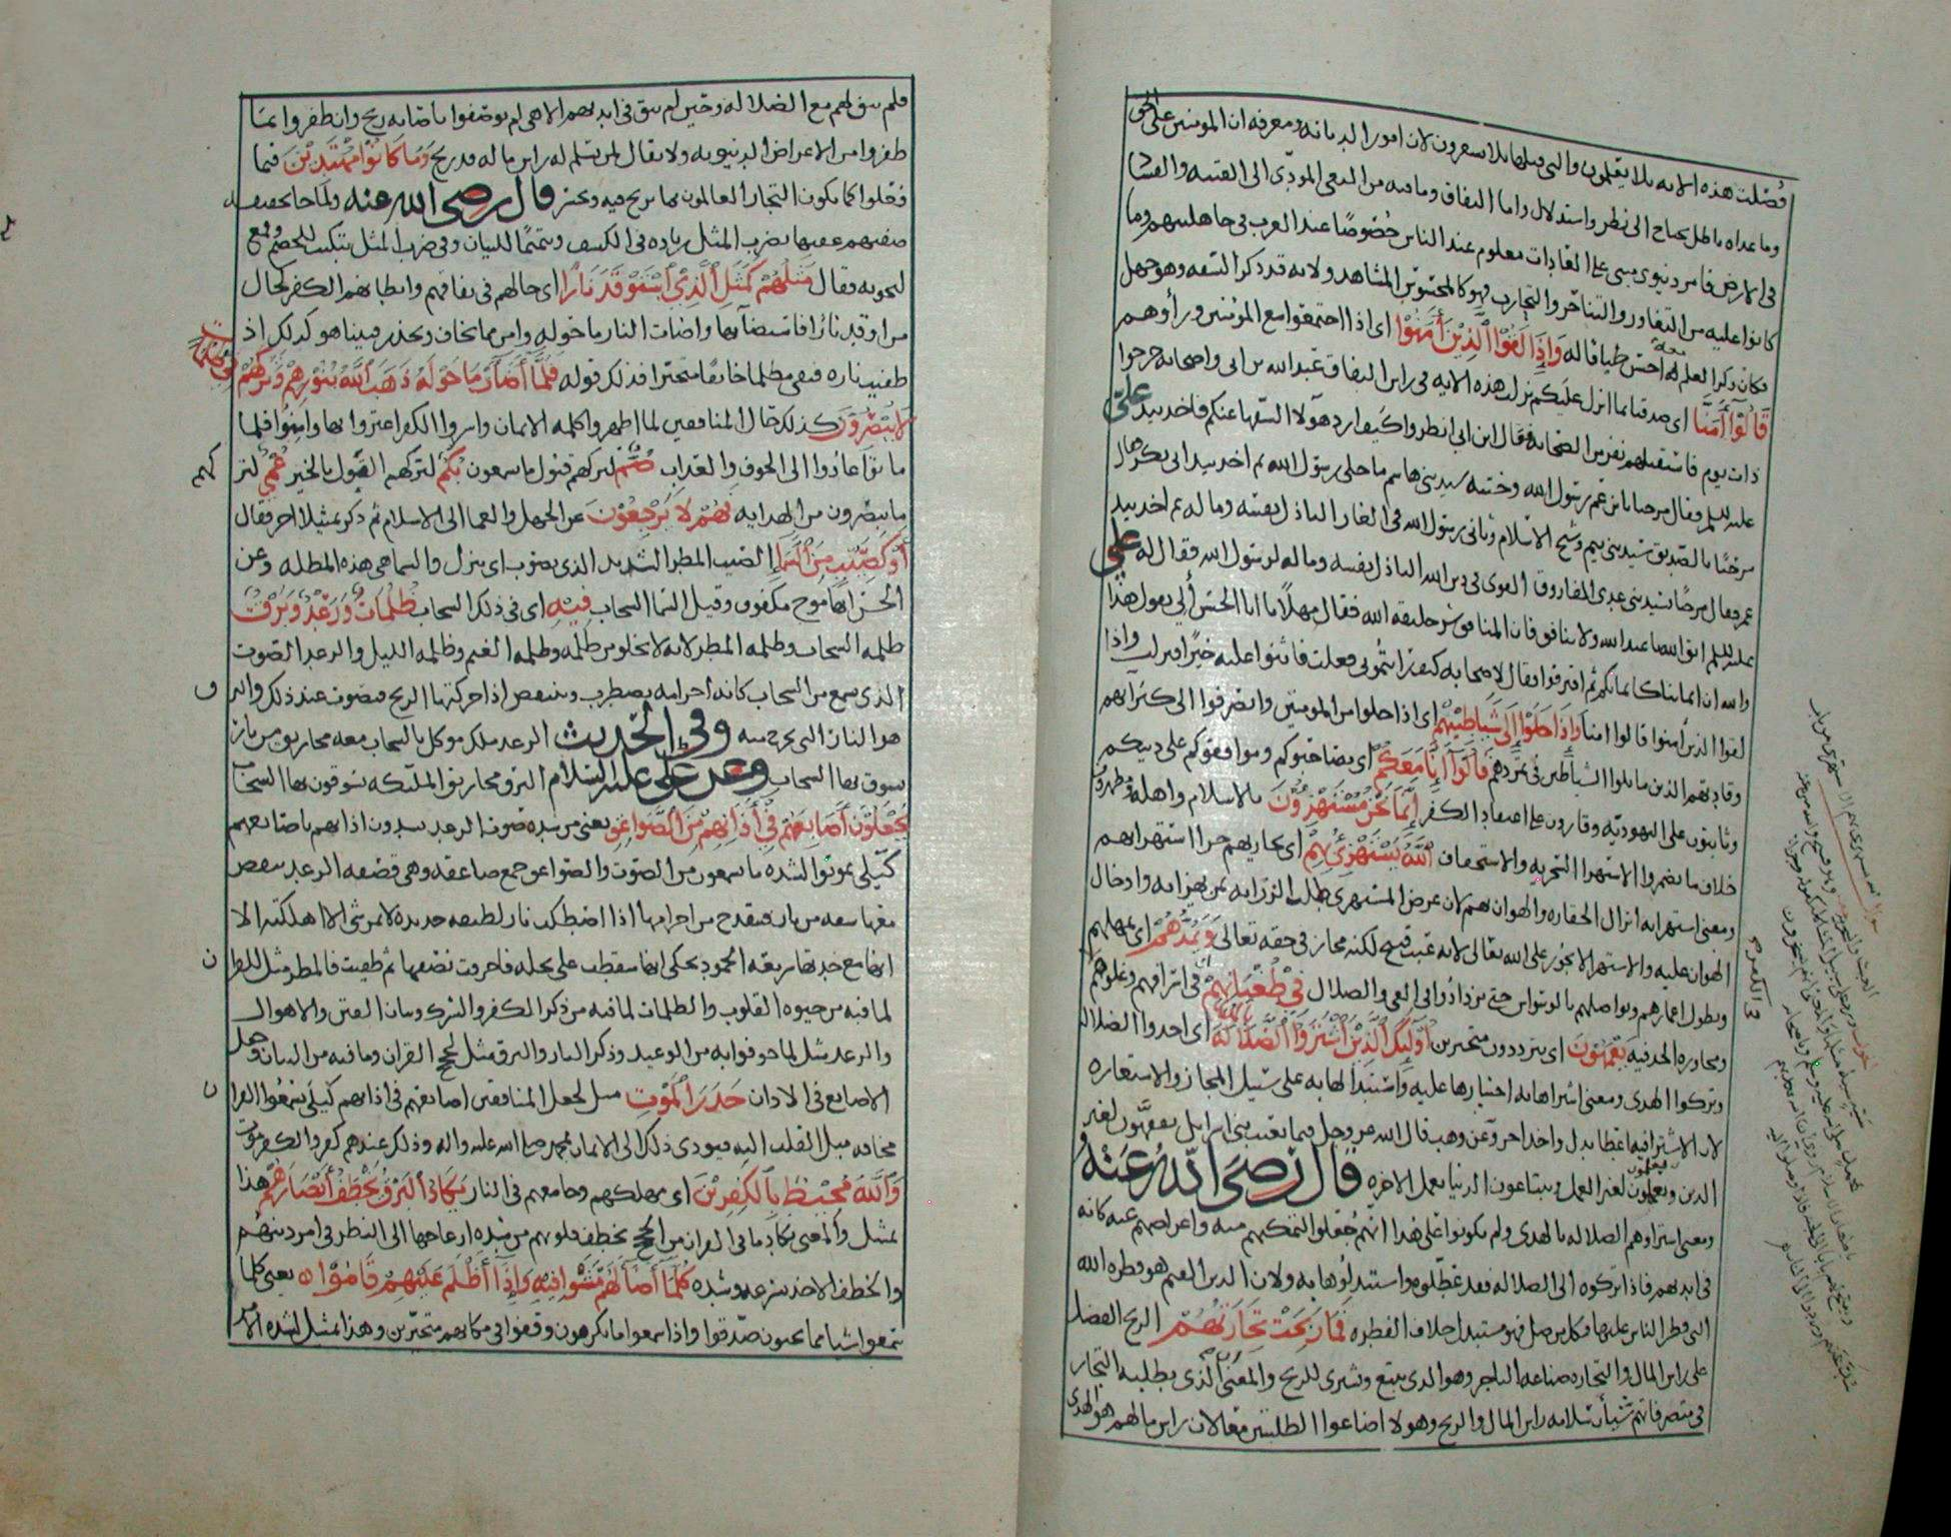 فصلت هذه الآية بلا يعلمون والتي قبلها بلا يشعرون لان امور الديانة ومعرفة ان المومنين على الحق
وما عداه باطل يحتاج الى نظر واستدلال واما النفاق وما فيه من البغي المودي الى الفتنة والفساد
في الارض فامر دنيوي مبني على العادات معلوم عند الناس خصوصًا عند العرب في جاهليتهم وما
كانوا عليه من التغاور والتناحر والتحارب فهو كالمحسوس المشاهد ولانه قد ذكر السفه وهو جهل
فكان ذكر العلم معه احسن طباقا له وَاِذَا لَقُوْا الَّذِيْنَ أَمَنُوْا اي اذا اجتمعوا مع المومنين ورأوهم
قَالُوْآ أَمَنَّا اي صدقنا بما انزل عليكم نزلت هذه الاية في راس النفاق عبد الله بن ابي واصحابه خرجوا
ذات يوم فاستقبلهم نفر من الصحابة فقال ابن ابي انظروا كيف ارد هولا السفها عنكم فاخذ بيد علي
عليه السلم وقال مرحبا بابن عم رسول الله وختنه سيد بني هاشم ما خلى رسول الله ثم اخذ بيد ابي بكر فقال
مرحبًا بالصديق سيد بني تيم وشيخ الاسلام وثاني رسول الله في الغار الباذل نفسه وماله ثم اخذ بيد
عمر وقال مرحبًا بسيد بني عدي الفاروق القوي في دين الله الباذل نفسه وماله لرسول الله فقال له علي
عليه السلم اتق الله يا عبد الله ولا تنافق فان المنافق شر خليقة الله فقال مهلًا يا ابا الحسن ألي تقول هذا
والله ان ايماننا كايمانكم ثم افترقوا فقال لاصحابه كيف رايتموني فعلت فاثنوا عليه خيرًا فنزلت واذا
لقوا الذين أمنوا قالوا امنا وَاِذَا خَلَوْا إِلَى شَيَاطِيْنِهِمْ اي اذا خلوا من المومنين وانصرفوا الى كبرآيهم
وقادتهم الذين ماثلوا الشياطين في تمردهم قَالُوْآ إِنَّا مَعَكُمْ اي مصاحبوكم وموافقوكم على دينكم
وثابتون على اليهودية وقارون على اعتقاد الكفر إِنَّمَا نَحْنُ مُسْتَهْزِؤُنَ بالاسلام واهله ومظهرون
خلاف ما نضمر والاستهزا السخرية والاستخفاف اَللَّهُ يَسْتَهْزِئُ بِهِمْ اي يجازيهم جزا استهزايهم
ومعنى استهزايه انزال الحقارة والهوان بهم لان غرض المستهزي طلب الزراية بمن يهزا به وادخال
الهوان عليه والاستهزا لا يجوز على الله تعالى لانه عبث قبيح لكنه مجاز في حقه تعالى وَيَمُدُّهُمْ اي يمهلهم
ويطول اعمارهم ويواصلهم بالوسواس حتى يزدادوا في الغي والضلال فِيْ طُغْيَانِهِمْ في اسرافهم وغلوهم
ومجاوزة الحد فيه يَعْمَهُوْنَ اي يترددون متحيرين اُولَئِكَ الَّذِيْنَ اشْتَرَوُا الضَّلَالَةَ اي اخذوا الضلالة
وتركوا الهدى ومعنى اشتراها به اختيارها عليه واستبدالها به على سبيل المجاز والاستعارة
لان الاشترا فيه اعطا بدل واخذ اخر وعن وهب قال الله عز وجل فيما يعيب بني اسرائيل يتفقهون لغير
الدين ويعلمون لغير العمل ويبتاعون الدنيا بعمل الاخرة قَالَ رَضِيَ اللَّهُ عَنْهُ
ومعنى اشتراوهم الضلالة بالهدى ولم يكونوا على هدا انهم جعلوا لتمكنهم منه واعراضهم عنه كانه
في ايديهم فاذا تركوه الى الضلالة فقد عطلوه واستبدلوها به ولان الدين القيم هو فطرة الله
التي فطر الناس عليها فكل من ضل فهو مستبدل خلاف الفطرة فَمَا رَبِحَتْ تِجَارَتُهُمْ الربح الفضل
على راس المال والتجارة صناعة التاجر وهو الذي يبيع ويشتري للربح والمعنى ان الذي يطلبه التجار
في متصرفاتهم شيأن سلامة راس المال والربح وهولا اضاعوا الطلبتين معا لان راس مالهم هو الهدى
فلم يبق لهم مع الضلالة وحين لم يبق في ايديهم الا هي لم يوصفوا باصابة ربح وان ظفروا بما
ظفروا من الاعراض الدنيوية ولا يقال لمن لم يسلم له راس ماله قد ربح وَمَا كَانُوْا مُهْتَدِيْنَ فيما
فعلوا كما يكون التجار العالمون بما يربح فيه ويخسر قال رضى الله عنه ولما جا بحقيقة
صفتهم عقبها بضرب المثل زيادة في الكشف وتتميمًا للبيان وفي ضرب المثل تبكيت للخصم وقمع
لنخوته فقال مَثَلُهُمْ كَمَثَلِ الَّذِيْ اسْتَوْقَدَ نَارًا اي حالهم في نفاقهم وابطانهم الكفر كحال
من اوقد نارًا فاستضآ بها واضات النار ما حوله وامن مما يخاف ويحذر فبينا هو كذلك اذ
طفيت ناره فبقي مظلما خائفا متحيرا فذلك قوله فَلَمَّآ أَضَآءَتْ مَا حَوْلَهُ ذَهَبَ اللَّهُ بِنُوْرِهِمْ وَتَرَكَهُمْ
فِيْ ظُلُمَاتٍ
لَا يُبْصِرُوْنَ كذلك حال المنافقين لما اظهروا كلمة الايمان واسروا الكفر اعتزوا بها وامنوا فلما
ماتوا عادوا الى الخوف والعذاب صُمٌّ لتركهم قبول ما يسمعون بُكْمٌ لتركهم القول بالخير عُمْيٌ لتركهم
ما يبصرون من الهداية فَهُمْ لَا يَرْجِعُوْنَ عن الجهل والعما الى الاسلام ثم ذكر تمثيلا اخر فقال
أَوْ كَصَيِّبٍ مِنَ السَّمَآءِ الصيب المطر الشديد الذي يصوب اي ينزل والسما هي هذه المظلة وعن
الحسن انها موج مكفوف وقيل السما السحاب فِيْهِ اي في ذلك السحاب ظُلُمَاتٌ وَرَعْدٌ وَبَرْقٌ
ظلمة السحاب وظلمة المطر لانه لا يخلو من ظلمة وظلمة الغيم وظلمة الليل والرعد الصوت
الذي يسمع من السحاب كانه اجرامه يضطرب وينتفض اذا حركتها الريح فيصوت عند ذلك والبرق
هو النار التي تخرج منه وفي الحديث الرعد ملك موكل بالسحاب معه مخاريق من نار
يسوق بها السحاب وعن علي عليه السلام البرق مخاريق الملئكة يسوقون بها السحاب
يَجْعَلُوْنَ أَصَابِعَهُمْ فِيْ أَذَانِهِمْ مِنَ الصَّوَاعِقِ يعني من شدة صوت الرعد يسدون اذانهم باصابعهم
كيلا يموتوا لشدة ما يسمعون من الصوت والصواعق جمع صاعقة وهي قصفة الرعد ينقض
معها شعفة من نار فينقدح من اجرامها اذا اصطكت نار لطيفة حديدة لا تمر بشي الا اهلكته الا
انها مع حدتها سريعة الخمود يحكى انها سقطت على نخلة فاحرقت نصفها ثم طفيت فالمطر مثل للقران
لما فيه من حيوة القلوب والظلمات لما فيه من ذكر الكفر والشرك وبيان الفتن والاهوال
والرعد مثل لما خوفوا به من الوعيد وذكر النار والبرق مثل لحجج القران وما فيه من البيان وجعل
الاصابع في الاذان حَذَرَ الْمَوْتِ مثل لجعل المنافقين اصابعهم في اذانهم كيلا يسمعوا القران
مخافة ميل القلب اليه فيودي ذلك الى الايمان بمحمد صلى الله عليه واله وذلك عندهم كفر والكفر موت
وَاللَّهُ مُحِيْطٌ بِالْكَفِرِيْنَ اي مهلكهم وجامعهم في النار يَكَادُ الْبَرْقُ يَخْطَفُ أَبْصَارَهُمْ هذا
تمثيل والمعنى يكاد ما في القران من الحجج يخطف قلوبهم من شدة ازعاجها الى النظر في امر دينهم
والخطف الاخذ بسرعة وشدة كُلَّمَآ أَضَآءَ لَهُمْ مَشَوْا فِيْهِ وَإِذَآ أَظْلَمَ عَلَيْهِمْ قَامُوْا يعني كلما
سمعوا شيا مما يحبون صدقوا واذا سمعوا ما يكرهون وقفوا في مكانهم متحيرين وهذا تمثيل لشدة الامر